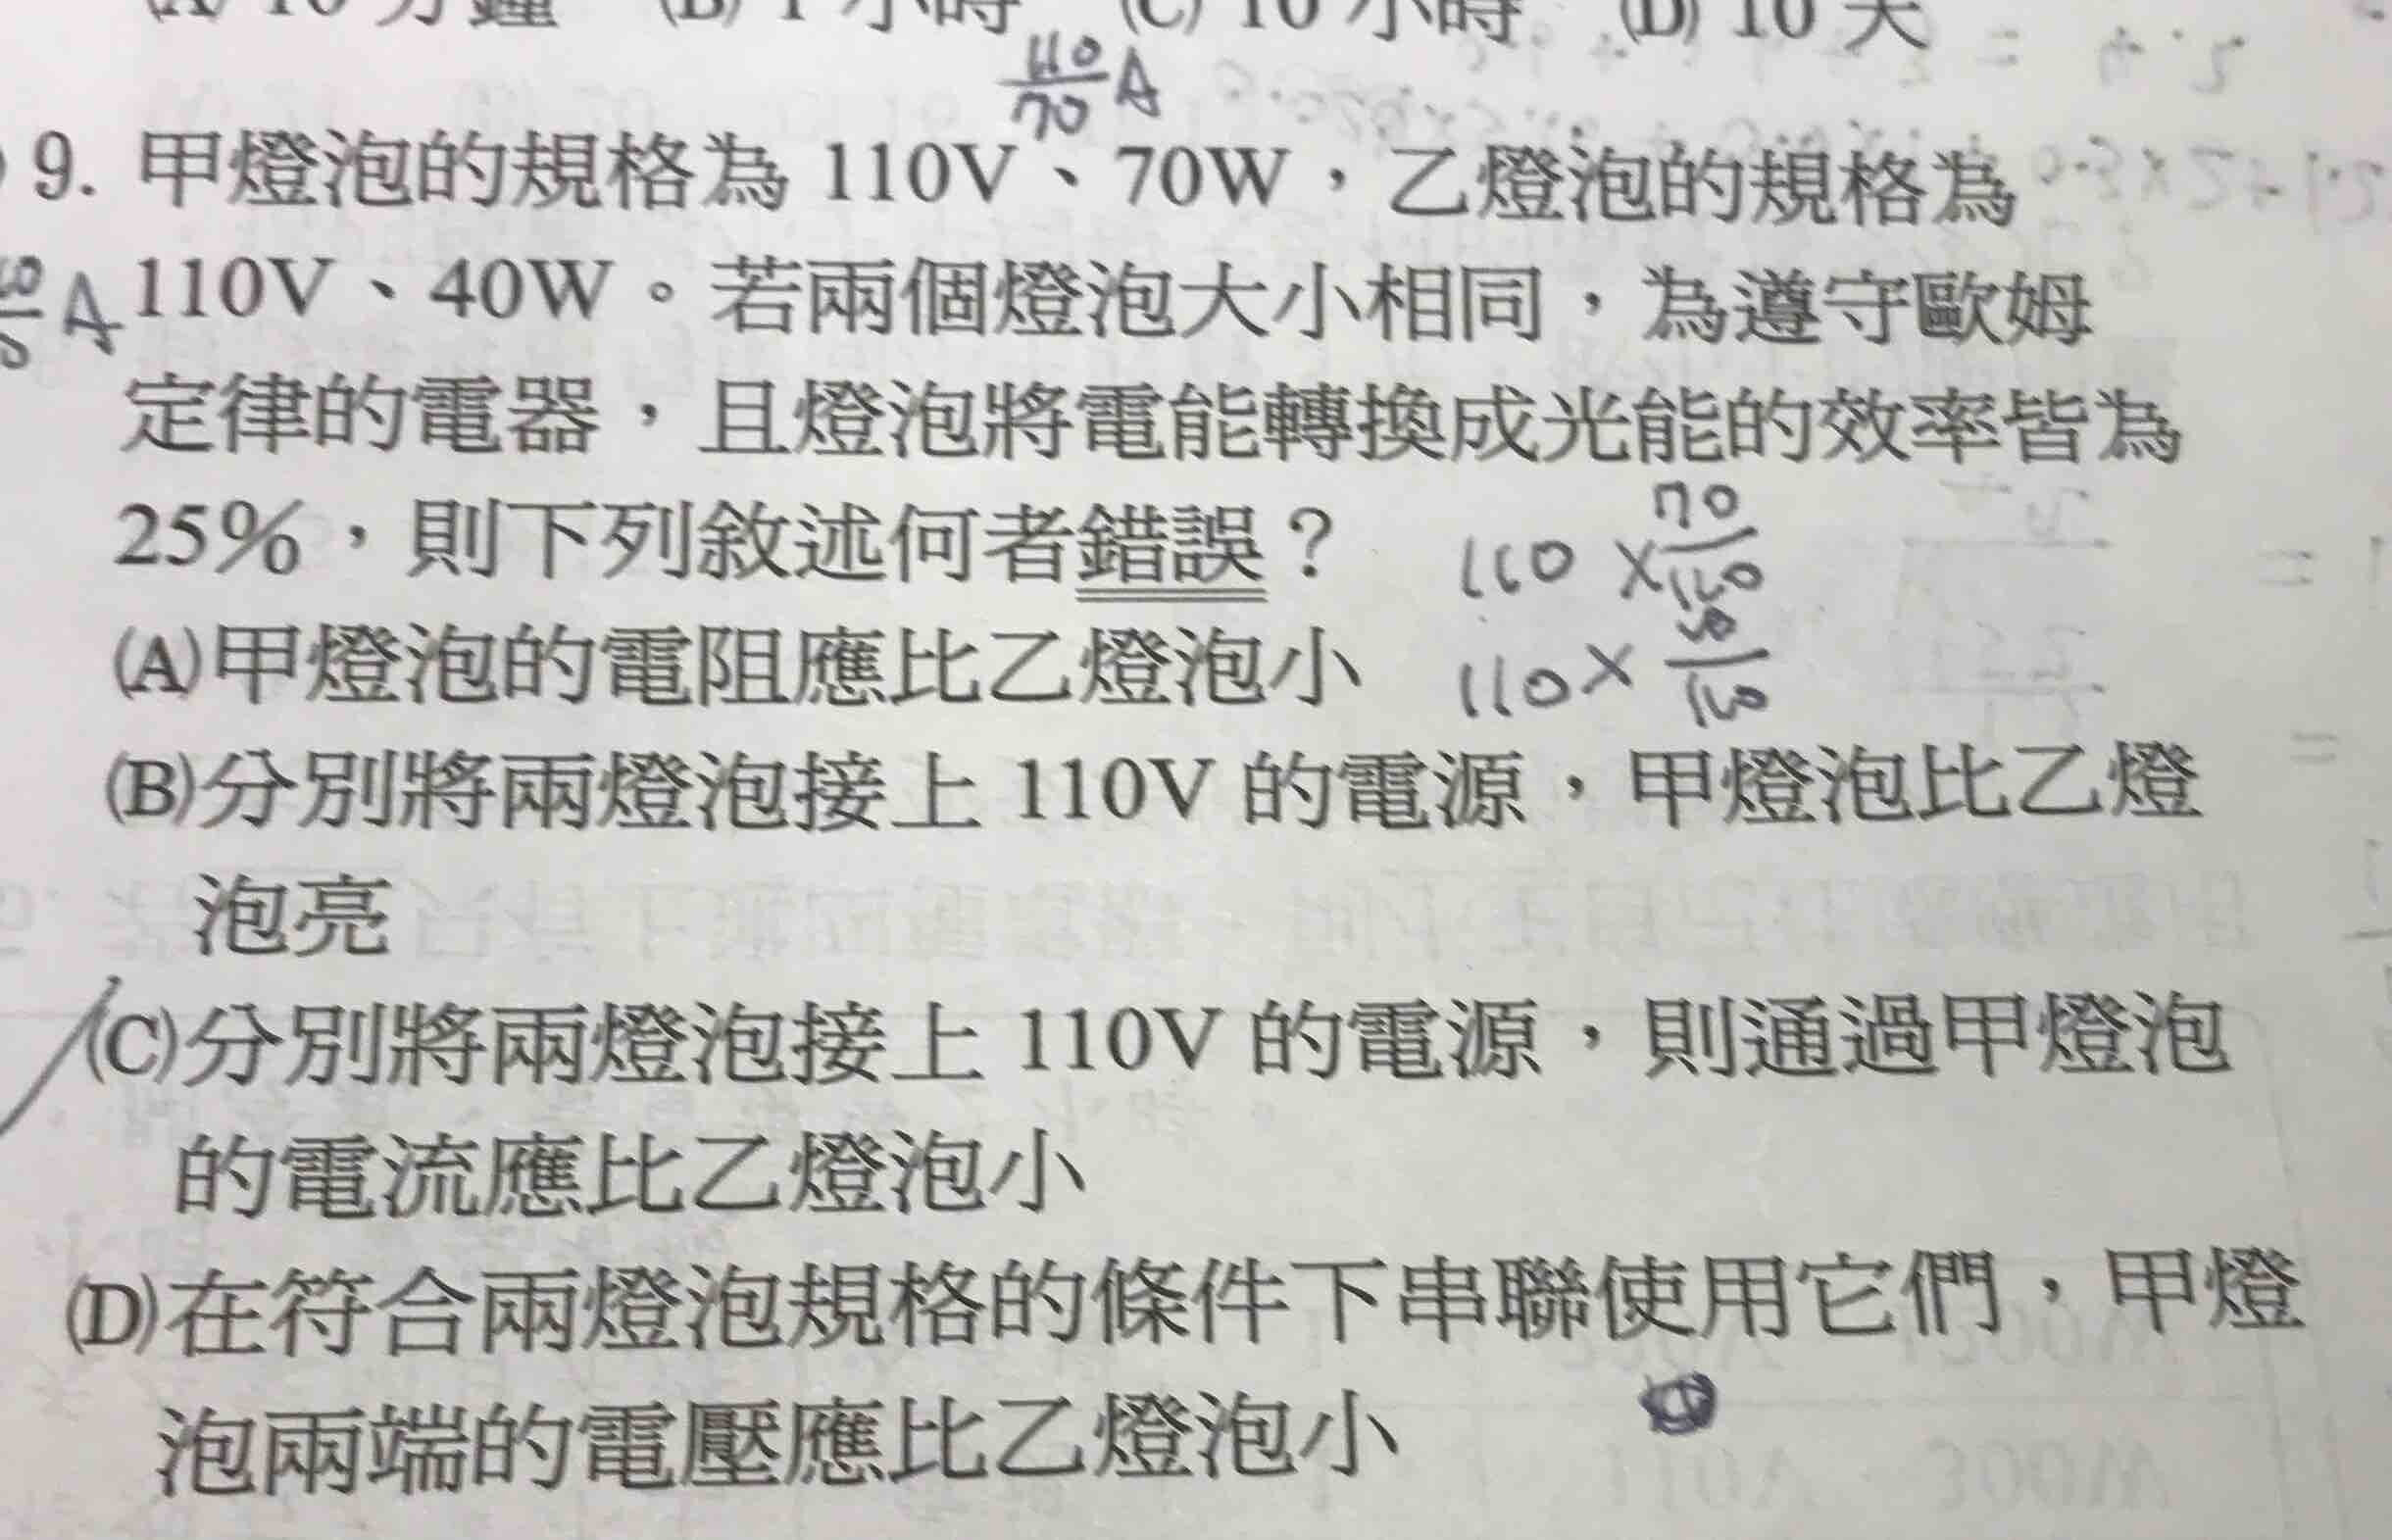 (A) 10 分鐘 (B) 1 小時 (C) 10 小時 (D) 10 天
110/70 A
9. 甲燈泡的規格為 110V、70W，乙燈泡的規格為
A 110V、40W。若兩個燈泡大小相同，為遵守歐姆
定律的電器，且燈泡將電能轉換成光能的效率皆為
25%，則下列敘述何者錯誤？ 110 × 70/110
(A)甲燈泡的電阻應比乙燈泡小 110 ×
(B)分別將兩燈泡接上 110V 的電源，甲燈泡比乙燈
泡亮
(C)分別將兩燈泡接上 110V 的電源，則通過甲燈泡
的電流應比乙燈泡小
(D)在符合兩燈泡規格的條件下串聯使用它們，甲燈
泡兩端的電壓應比乙燈泡小